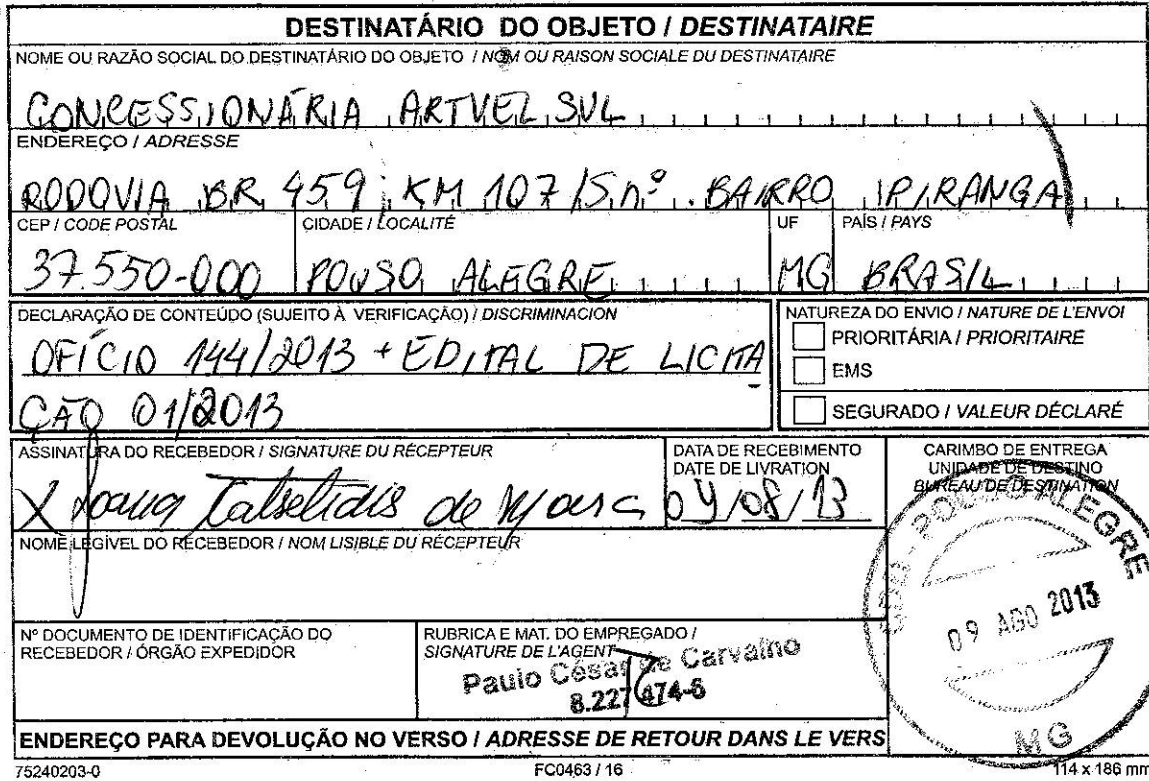 DESTINATÁRIO DO OBJETO / DESTINATAIRE
NOME OU RAZÃO SOCIAL DO DESTINATÁRIO DO OBJETO / NOM OU RAISON SOCIALE DU DESTINATAIRE
CONCESSIONÁRIA ARTVEL SUL
ENDEREÇO / ADRESSE
RODOVIA BR 459 KM 107 / S.nº. BAIRRO IPIRANGA
CEP / CODE POSTAL CIDADE / LOCALITÉ UF PAÍS / PAYS
37.550-000 POUSO ALEGRE MG BRASIL
DECLARAÇÃO DE CONTEÚDO (SUJEITO À VERIFICAÇÃO) / DISCRIMINACION
OFÍCIO 144/2013 + EDITAL DE LICITA
ÇÃO 01/2013
NATUREZA DO ENVIO / NATURE DE L'ENVOI
PRIORITÁRIA / PRIORITAIRE
EMS
SEGURADO / VALEUR DÉCLARÉ
ASSINATURA DO RECEBEDOR / SIGNATURE DU RÉCEPTEUR
X de
DATA DE RECEBIMENTO
DATE DE LIVRATION
09/08/13
CARIMBO DE ENTREGA
UNIDADE DE DESTINO
BUREAU DE DESTINATION
POUSO ALEGRE
09 AGO 2013
MG
NOME LEGÍVEL DO RECEBEDOR / NOM LISIBLE DU RÉCEPTEUR
Nº DOCUMENTO DE IDENTIFICAÇÃO DO
RECEBEDOR / ÓRGÃO EXPEDIDOR
RUBRICA E MAT. DO EMPREGADO /
SIGNATURE DE L'AGENT
Paulo César de Carvalho
8.227.474-6
ENDEREÇO PARA DEVOLUÇÃO NO VERSO / ADRESSE DE RETOUR DANS LE VERS
75240203-0 FC0463 / 16 114 x 186 mm